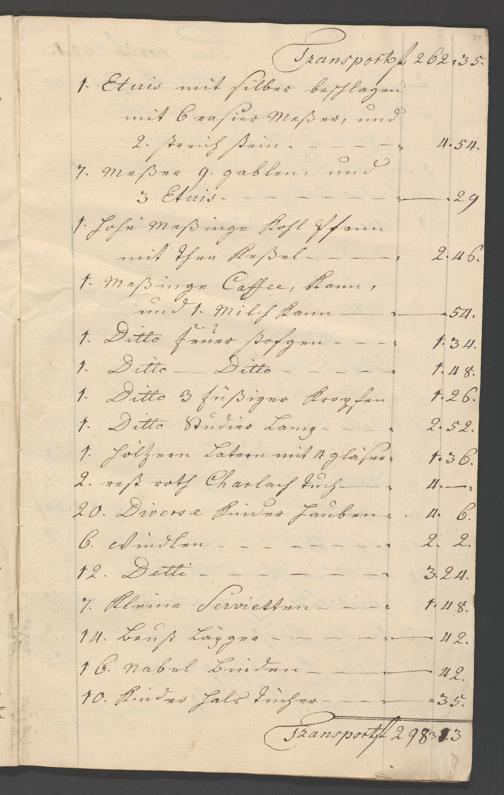 Transport f 262.35.
1. Etuis mit silber beschlagen
mit 6 rasier Meßer, und
2. streich stein - - - - „ 4.54.
7. Meßer 9. gablen, und
3 Etuis - - - - - „ — 29
1. hohe Meßinge Kohl Pfann
mit Thee Keßel - - - - „ 2.46.
1. Meßinge Caffee, Kann,
und 1. Milch Kann - - - „ - 54.
1. Ditto feüer - - - 1.34.
1. Ditto — Ditto - - - - 1.48.
1. Ditto 3 füßiger 1.26.
1. Ditto Studier Lamp - - - 2.52.
1. höltzern Latern mit 4 gläser „ 1.36.
2. rest roth Charlach Tuch - „ 4. — „
20. Diverse Kinder hauben - „ 4. 6.
6. Windlen - - - - - - „ 2. 2.
12. Detti - - - - - - - „ 3.24.
7. Kleine Servietten - - - - „ 1.48.
14. Brust - - - - „ — 42.
16. Nabel Binden - - - - „ — 42.
10. Kinder hals Tücher - - - „ - 35.
Transport f 298.13